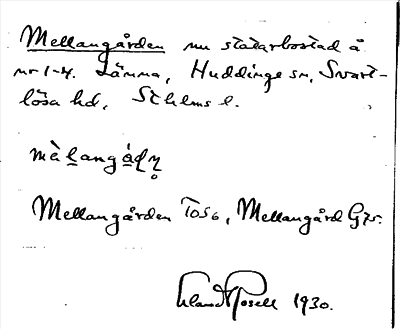 Mellangården nu statarbostad å
nr 1-4. Länna, Huddinge sn, Svart-
lösa hd, Sthlms l.
mèḷangá̤dn̥
Mellangården To56, Mellangård G75.
Erland Rosell 1930.